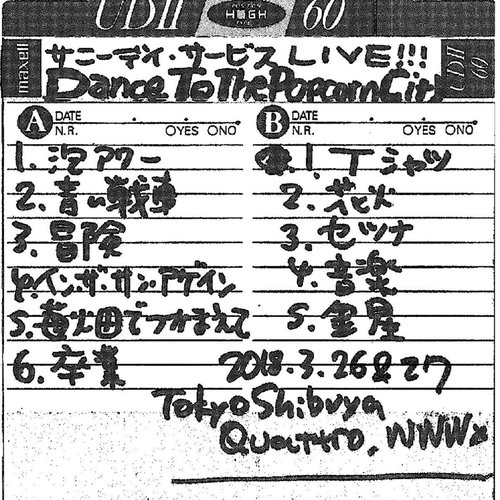 UDII POSITION HIGH TYPE II 60
maxell
サニーデイ・サービス LIVE!!!
Dance To The Popcorn City
UDII 60
A DATE . .
N.R. OYES ONO
1. 泡アワー
2. 青い戦車
3. 冒険
4. イン・ザ・サン・アゲイン
5. 苺畑でつかまえて
6. 卒業
B DATE . .
N.R. OYES ONO
1. Tシャツ
2. 花火
3. セツナ
4. 音楽
5. 金星
2018.3.26&27
Tokyo Shibuya
Quattro, WWWX